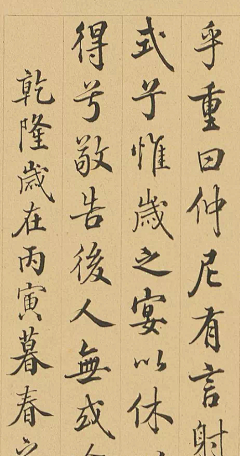 乎重曰仲尼有言射
式兮惟歲之宴以休
得兮敬告後人無或
乾隆歲在丙寅暮春之